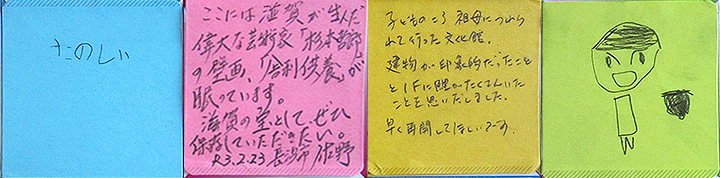 たのしい
ここには滋賀が生んだ
偉大な芸術家「杉本哲郎」
の壁画、「舎利供養」が
眠っています。
滋賀の宝として、ぜひ
保存していただきたい。
R3.2.23 長浜市 佐野
子どものころ 祖母につれら
れて行った文化館。
建物が印象的だったこと
と1Fに鯉がたくさんいた
ことを思いだしました。
早く再開してほしいです。